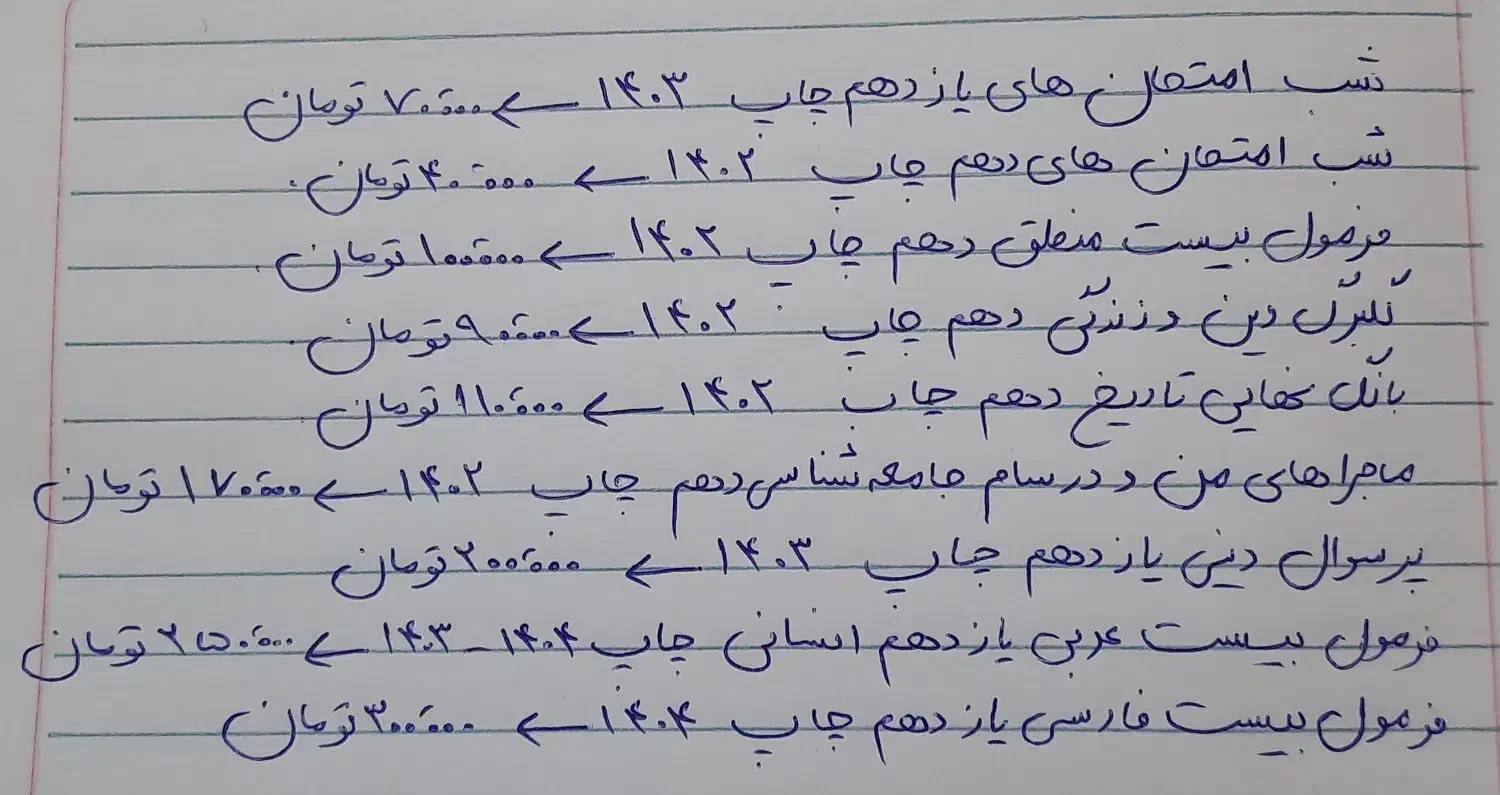 شب امتحان های یازدهم چاپ ۱۴۰۳ ← ۷۰٬۰۰۰ تومان
شب امتحان های دهم چاپ ۱۴۰۲ ← ۴۰٬۰۰۰ تومان.
فرمول بیست منطق دهم چاپ ۱۴۰۲ ← ۱۰۰٬۰۰۰ تومان.
تک‌برگ دین و زندگی دهم چاپ ۱۴۰۲ ← ۹۰٬۰۰۰ تومان.
بانک نهایی تاریخ دهم چاپ ۱۴۰۲ ← ۱۱۰٬۰۰۰ تومان
ماجراهای من و درسام جامعه شناسی دهم چاپ ۱۴۰۲ ← ۱۷۰٬۰۰۰ تومان
پرسوال دینی یازدهم چاپ ۱۴۰۳ ← ۲۰۰٬۰۰۰ تومان
فرمول بیست عربی یازدهم انسانی چاپ ۱۴۰۴ - ۱۴۰۳ ← ۲۵۰٬۰۰۰ تومان
فرمول بیست فارسی یازدهم چاپ ۱۴۰۴ ← ۳۰۰٬۰۰۰ تومان